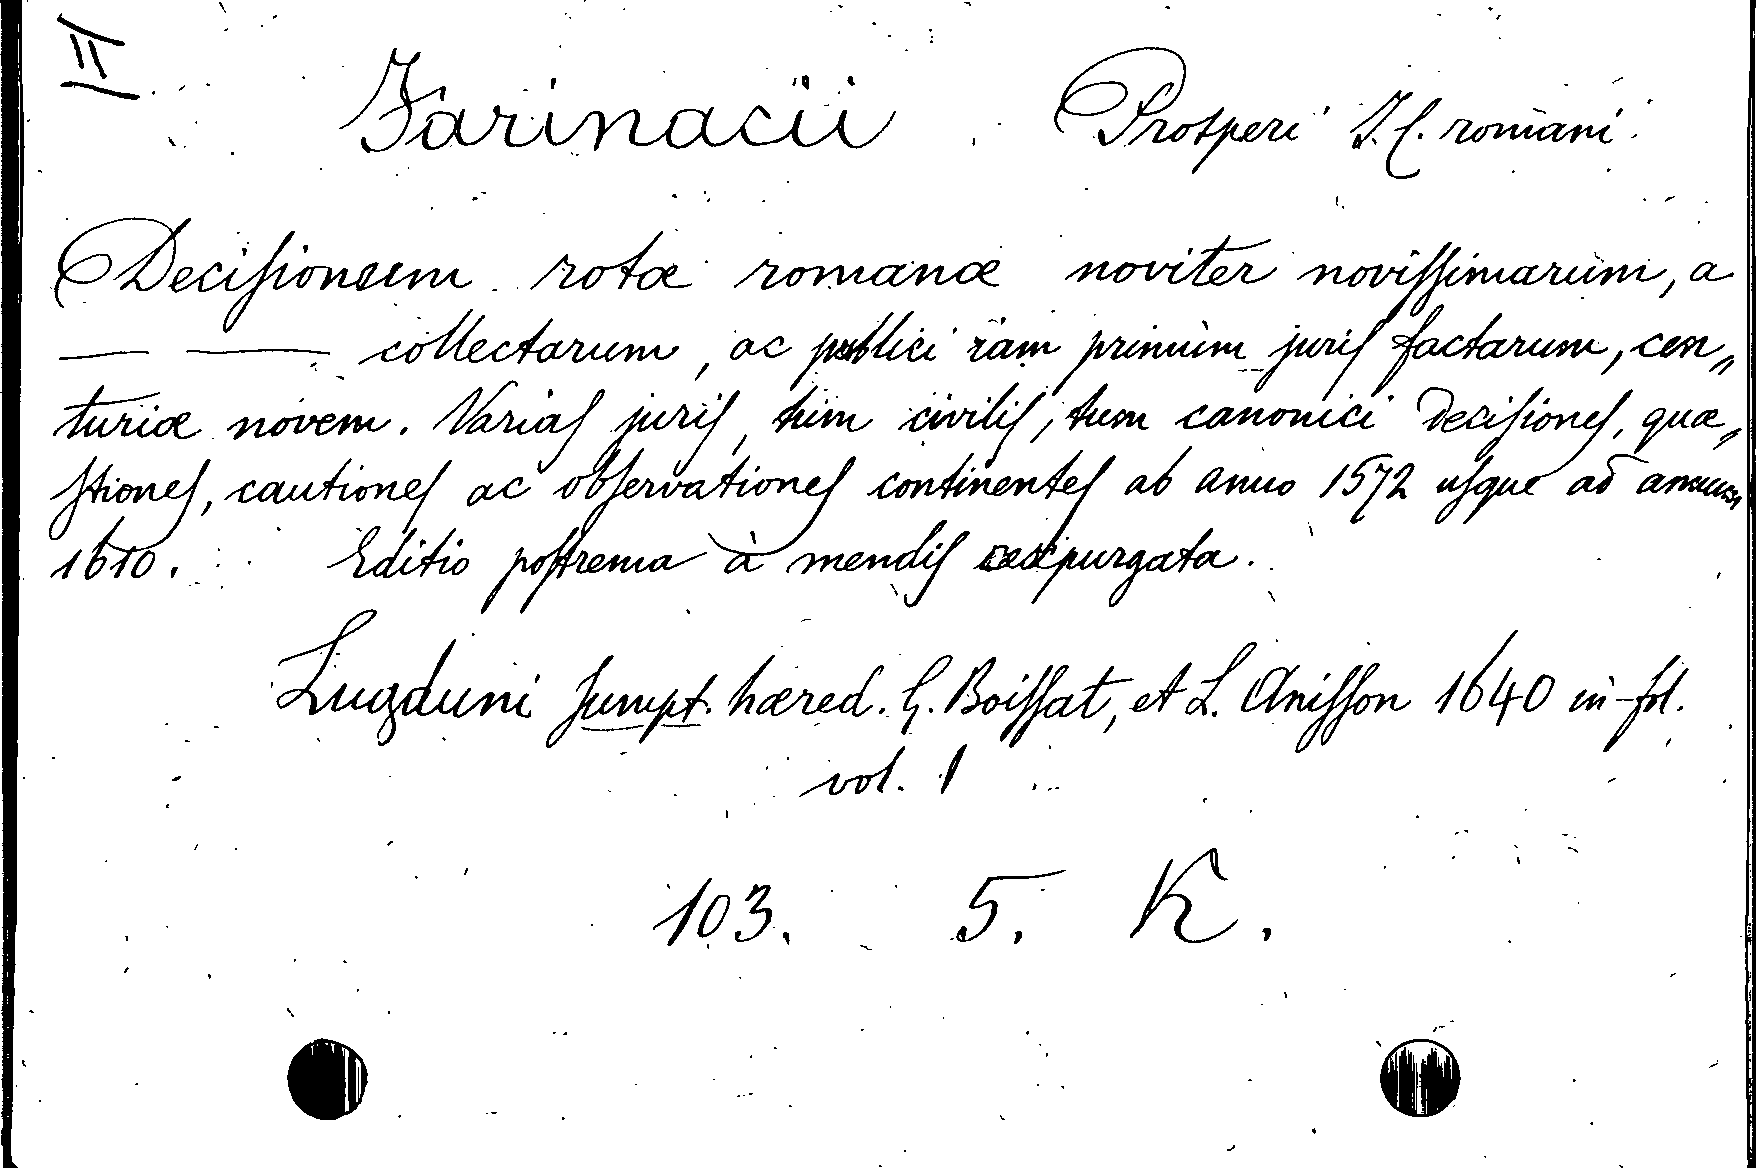 II
Farinacii Prosperi J. C. romani
Decisionum rotæ romanæ noviter novissimarum, a
— — collectarum, ac publici iam primum juris factarum, cen„
turiæ novem. Varias juris, tum civilis, tum canonici decisiones, quæ„
stiones, cautiones ac observationes continentes ab anno 1572 usque ad annum
1610. Editio postrema à mendis expurgata.
Lugduni sumpt. hæred. G. Boissat, et L. Anisson 1640 in-fol.
vol. 1
103. 5. K.